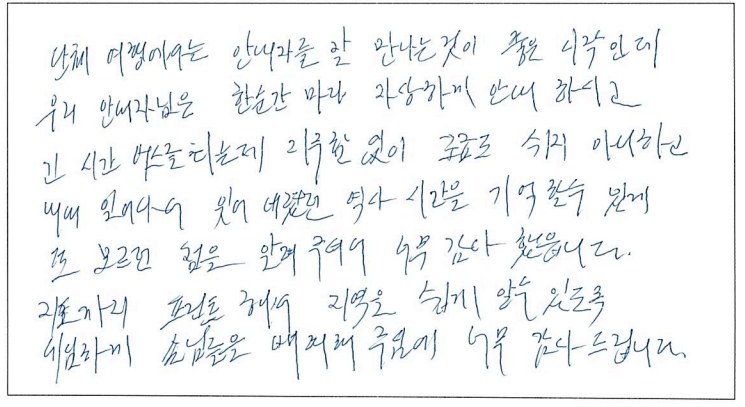 단체 여행에서는 안내자를 잘 만나는것이 좋은 시작인데
우리 안내자님은 한순간 마다 자상하게 안내 하시고
긴 시간 버스를 타는데 지루함 없이 조금도 쉬지 아니하고
내내 일어나서 잊어 버렸던 역사 시간을 기억 할수 있게
또 모르던 점을 알려 주셔서 너무 감사 했읍니다.
지도까지 프린트 해서 지역을 쉽게 알수 있도록
세심하게 손님들을 배려해 주심에 너무 감사드립니다.